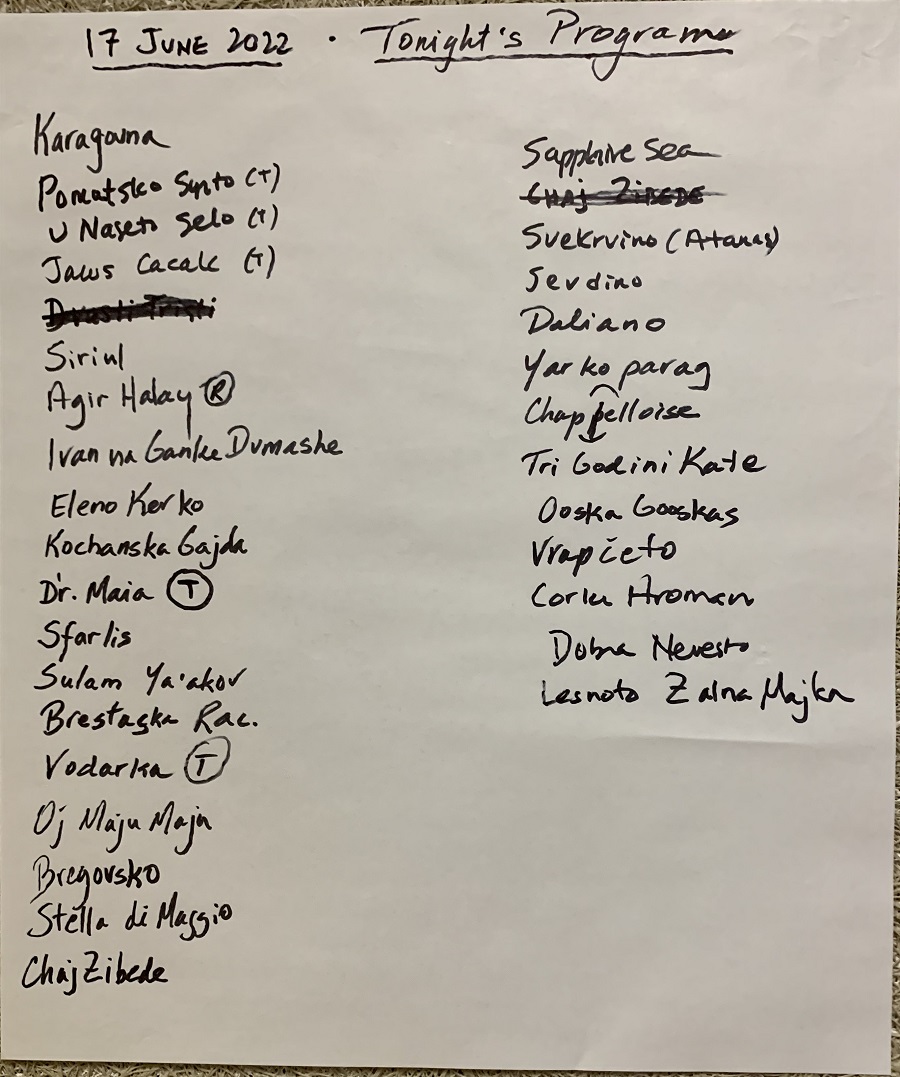 17 JUNE 2022 · Tonight's Programu
Karagouna
Pomatsko Syrto (T)
U Naseto Selo (T)
Jaws Cacak (T)
Drasti Tristi
Siriul
Agir Halay Ⓡ
Ivan na Ganke Dumashe
Eleno Kerko
Kochanska Gajda
Dr. Maia Ⓣ
Sfarlis
Sulam Ya'akov
Brestaska Rac.
Vodarka Ⓣ
Oj Maju Maju
Bregovsko
Stella di Maggio
Chaj Zibede
Sapphire Sea
CHAJ ZIBEDE
Svekrvino (Atanas)
Sevdino
Daliano
Yarko parag
Chappelloise
Tri Godini Kate
Ooska Gooskas
Vrapčeto
Corlu Hroman
Dobra Nevesto
Lesnoto Zalna Majka